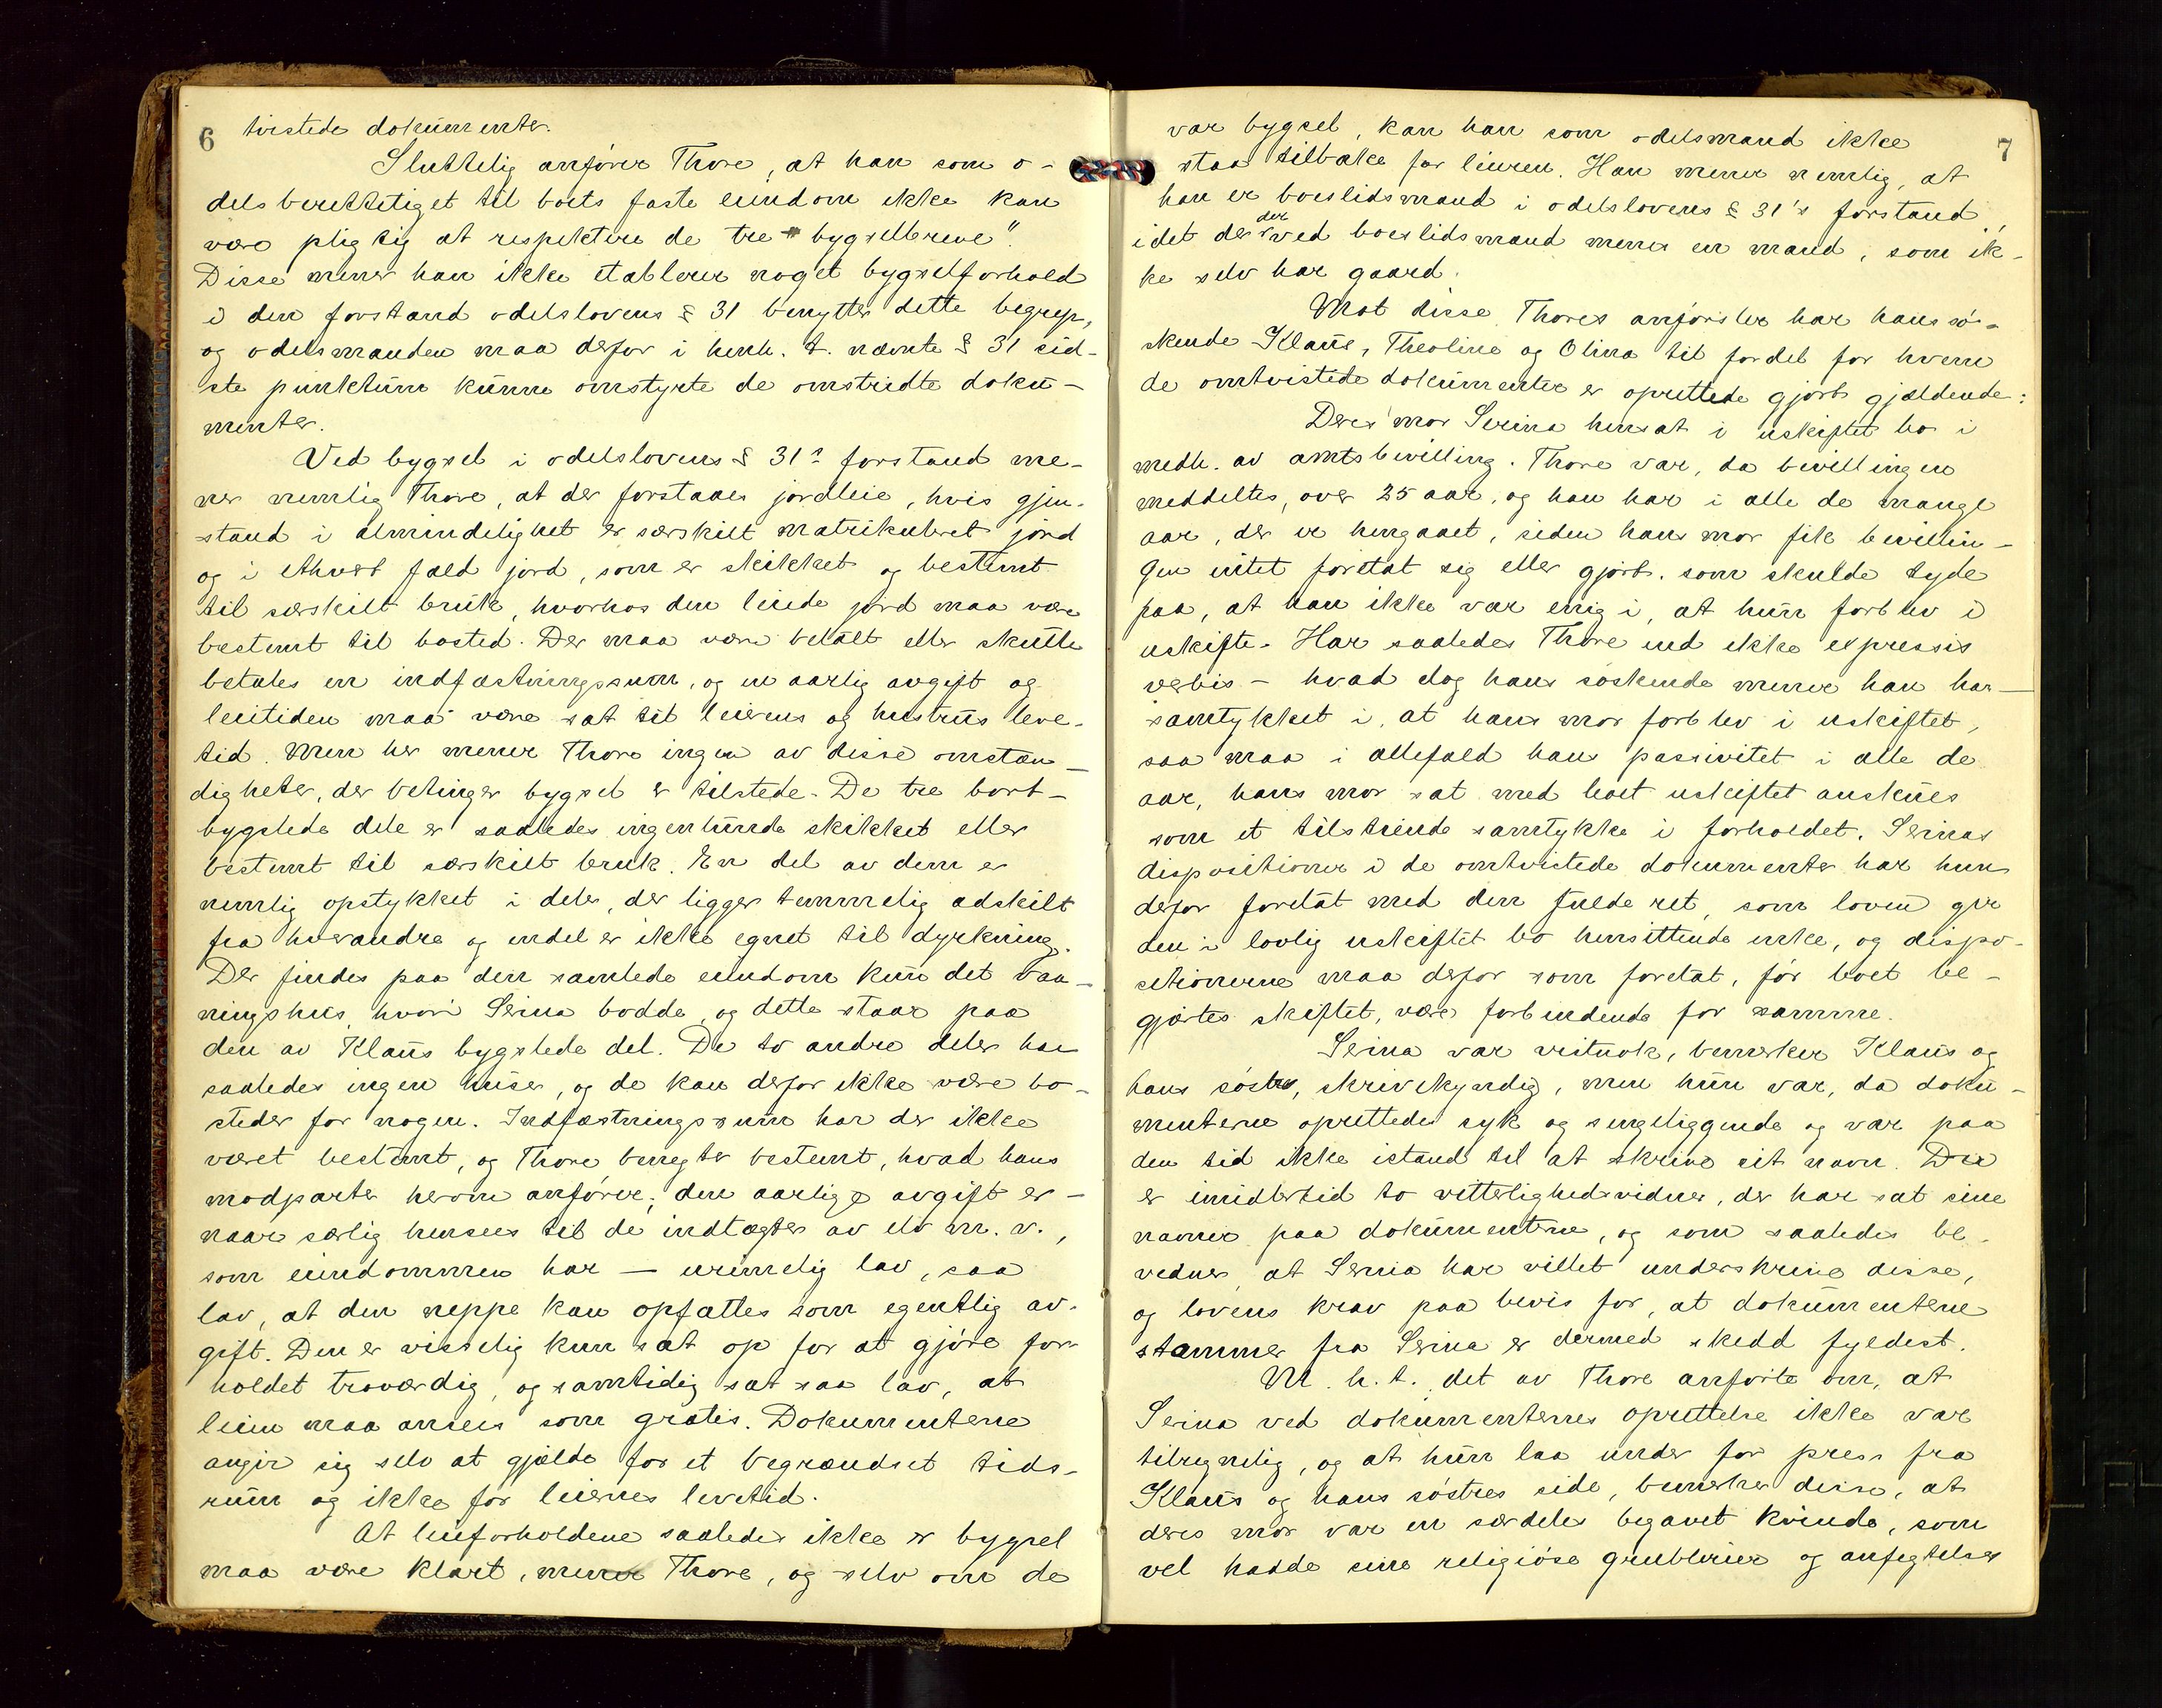 6
tvistede dokumenter.
Sluttelig anfører Thore, at han som o-
delsberettiget til boets faste eiendom ikke kan
være pligtig at respektere de tre "bygselbreve".
Disse mener han ikke etablerer noget bygselforhold
i den forstand odelslovens § 31 benytter dette begrep,
og odelsmanden maa derfor i henh. t. nævnte § 31 sid-
ste punktum kunne omstyrte de omstridte doku-
menter.
Ved bygsel i odelslovens § 31s forstand me-
ner nemlig Thore, at der forstaaes jordleie, hvis gjen-
stand i almindelighet er særskilt matrikuleret jord
og i ethvert fald jord, som er skikket og bestemt
til særskilt bruk, hvorhos den leiede jord maa være
bestemt til bosted. Der maa være betalt eller skulle
betales en indfæstningssum, og en aarlig avgift og
leietiden maa være sat til leierens og hustrus leve-
tid. Men her mener Thore ingen av disse omstæn-
digheter, der betinger bygsel er tilstede. De tre bort-
bygslede dele er saaledes ingenlunde skikket eller
bestemt til særskilt bruk. En del av dem er
nemlig opstykket i deler, der ligger temmelig adskilt
fra hverandre og endel er ikke egnet til dyrkning.
Der findes paa den samlede eiendom kun det vaa-
ningshus, hvori Serina bodde, og dette staar paa
den av Klaus bygslede del. De to andre deler har
saaledes ingen huser, og de kan derfor ikke være bo-
steder for nogen. Indfæstningssum har der ikke
været bestemt, og Thore benegter bestemt, hvad hans
modparter herom anfører; den aarlige avgift er -
naar særlig hensees til de indtægter av elv m. v.,
som eiendommen har — urimelig lav, saa
lav, at den neppe kan opfattes som egentlig av-
gift. Den er visselig kun sat op for at gjøre for-
holdet troværdig, og samtidig sat saa lav, at
leien maa ansees som gratis. Dokumentene
angir sig selv at gjælde for et begrændset tids-
rum og ikke for leiernes levetid.
At leieforholdene saaledes ikke er bygsel
maa være klart, mener Thore, og selv om de
7
var bygsel, kan han som odelsmand ikke
staa tilbake for leieren. Han mener nemlig, at
han er boeslidsmand i odelslovens § 31's forstand,
idet der ved boeslidsmand menes en mand, som ik-
ke selv har gaard.
Mot disse Thores anførsler har hans sø-
skende Klaus, Theoline og Olina til fordel for hvem
de omtvistede dokumenter er oprettede gjort gjældende:
Deres mor Serina hensat i uskiftet bo i
medh. av amtsbevilling. Thore var, da bevillingen
meddeltes, over 25 aar, og han har i alle de mange
aar, der er hengaaet, siden hans mor fik bevillin-
gen intet foretat sig eller gjort, som skulde tyde
paa, at han ikke var enig i, at hun forblev i
uskifte. Har saaledes Thore end ikke expressis
verbis - hvad dog hans søskende mener han har —
samtykket i, at hans mor forblev i uskiftet,
saa maa i allefald hans passivitet i alle de
aar, hans mor sat med boet uskiftet ansknes
som et tilstrende samtykke i forholdet. Serinas
dispositioner i de omtvistede dokumenter har hun
derfor foretat med den fulde ret, som loven gir
den i lovlig uskiftet bo hensittende enke, og dispo-
sitionerne maa derfor som foretat, før boet be-
gjærtes skiftet, være forbindende for samme.
Serina var vistnok, bemerker Klaus og
hans søstre, skrivekyndig, men hun var, da doku-
menterne oprettedes syk og sengeliggende og var paa
den tid ikke istand til at skrive sit navn. Der
er imidlertid to vitterlighedsvidner, der har sat sine
navne paa dokumentene, og som saaledes be-
vedner at Serina har villet underskrive disse,
og lovens krav paa bevis for, at dokumentene
stammer fra Serina er dermed skedd fyldest.
M. h. t. det av Thore anførte om, at
Serina ved dokumenternes oprettelse ikke var
tilregnelig, og at hun laa under for press fra
Klaus og hans søstres side, bemerker disse, at
deres mor var en særdeles begavet kvinde, som
vel hadde sine religiøse grublerier og anfegtelser